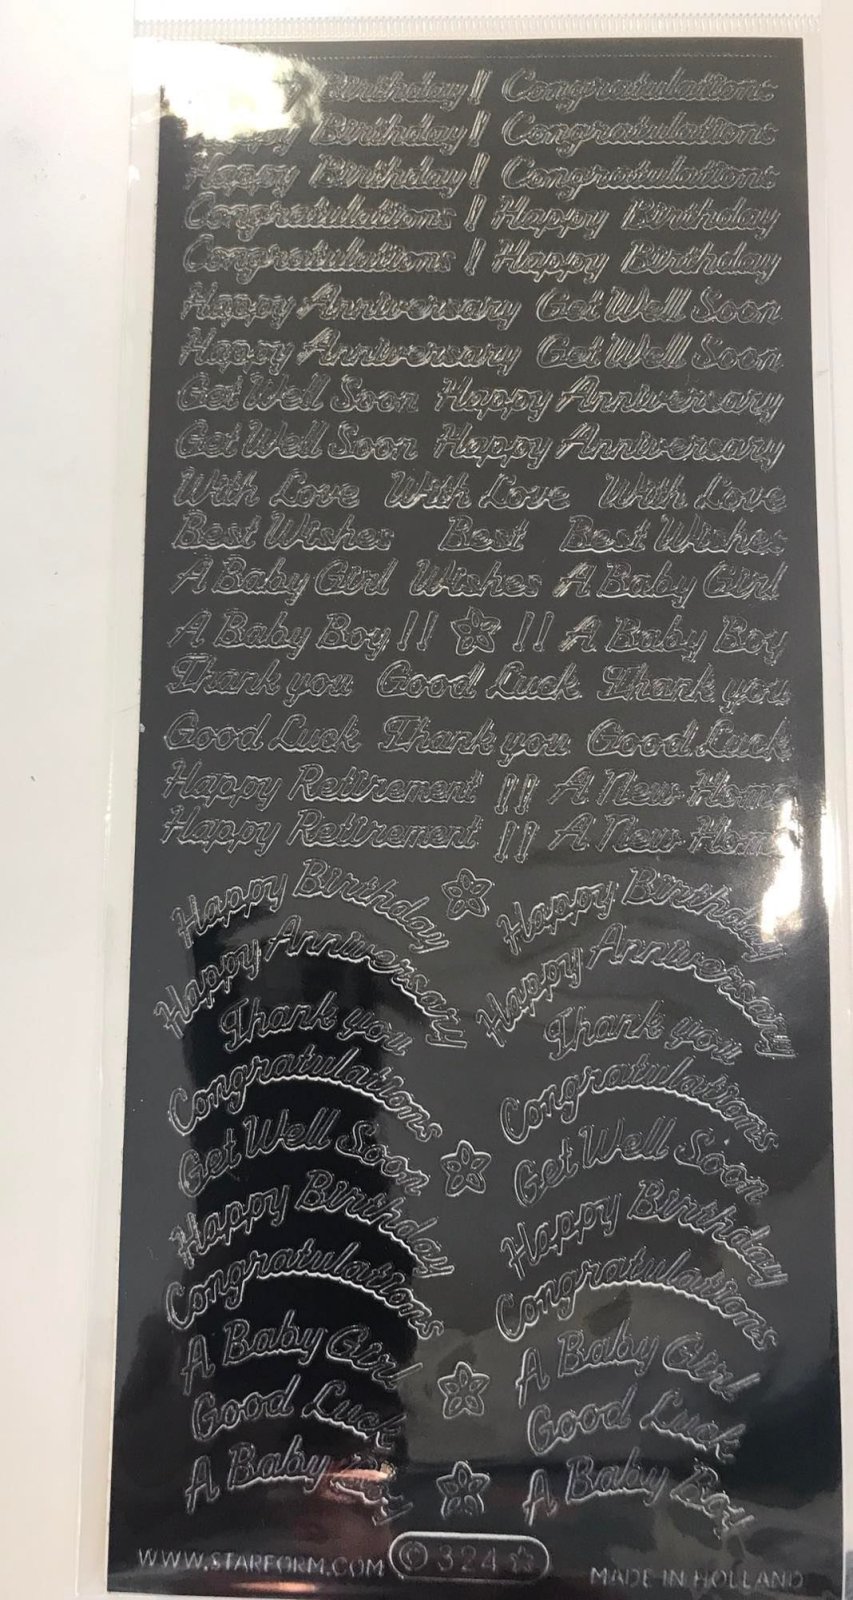 Birthday! Congratulations
Happy Birthday! Congratulations
Happy Birthday! Congratulations
Congratulations ! Happy Birthday
Congratulations ! Happy Birthday
Happy Anniversary Get Well Soon
Happy Anniversary Get Well Soon
Get Well Soon Happy Anniversary
Get Well Soon Happy Anniversary
With Love With Love With Love
Best Wishes Best Best Wishes
A Baby Girl Wishes A Baby Girl
A Baby Boy !! !! A Baby Boy
Thank you Good Luck Thank you
Good Luck Thank you Good Luck
Happy Retirement !! A New Home
Happy Retirement !! A New Home
Happy Birthday Happy Birthday
Happy Anniversary Happy Anniversary
Thank you Thank you
Congratulations Congratulations
Get Well Soon Get Well Soon
Happy Birthday Happy Birthday
Congratulations Congratulations
A Baby Girl A Baby Girl
Good Luck Good Luck
A Baby Boy A Baby Boy
WWW.STARFORM.COM © 324 ☆ MADE IN HOLLAND